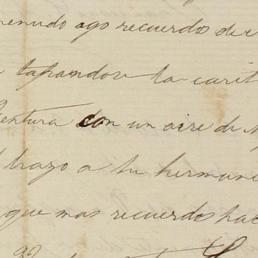 menudo ago recuerdo de
tapandov la carit
ventura con un aire de
brazo a tu herman
que mas recuerdo hac